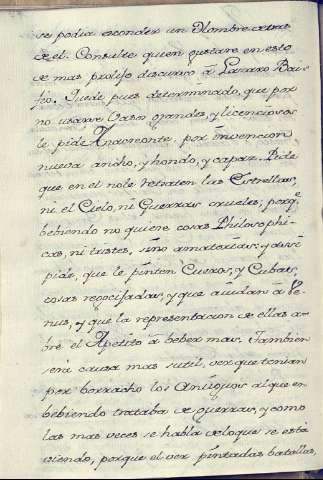 se podia esconder un Hombre detras
de el. Consulte quien gustare en esto
de mas prolijo discurso à Lazaro Bai-
fio. Quede pues determinado, que por
no usarse Vasos grandes, y licenciosos
le pide Anacreonte, por invencion
nueva ancho, y hondo, y capaz. Pide
que en el no le retraten las Estrellas,
ni el Cielo, ni Guerras crueles; porq.e
bebiendo no quiere cosas Philosophi-
cas, ni tristes, sino amatorias: y assi
pide, que le pinten Cueros, y Cubas,
cosas regocijadas, y que aiudan à Ve-
nus, y que la representacion de ellas a-
bre el Apetito à beber mas. Tambien
seria causa mas sutil, ver que tenian
por borracho los Antiguos al que en
bebiendo trataba de guerras, y como
las mas veces se habla de lo que se està
viendo, porque el ver pintadas batallas,